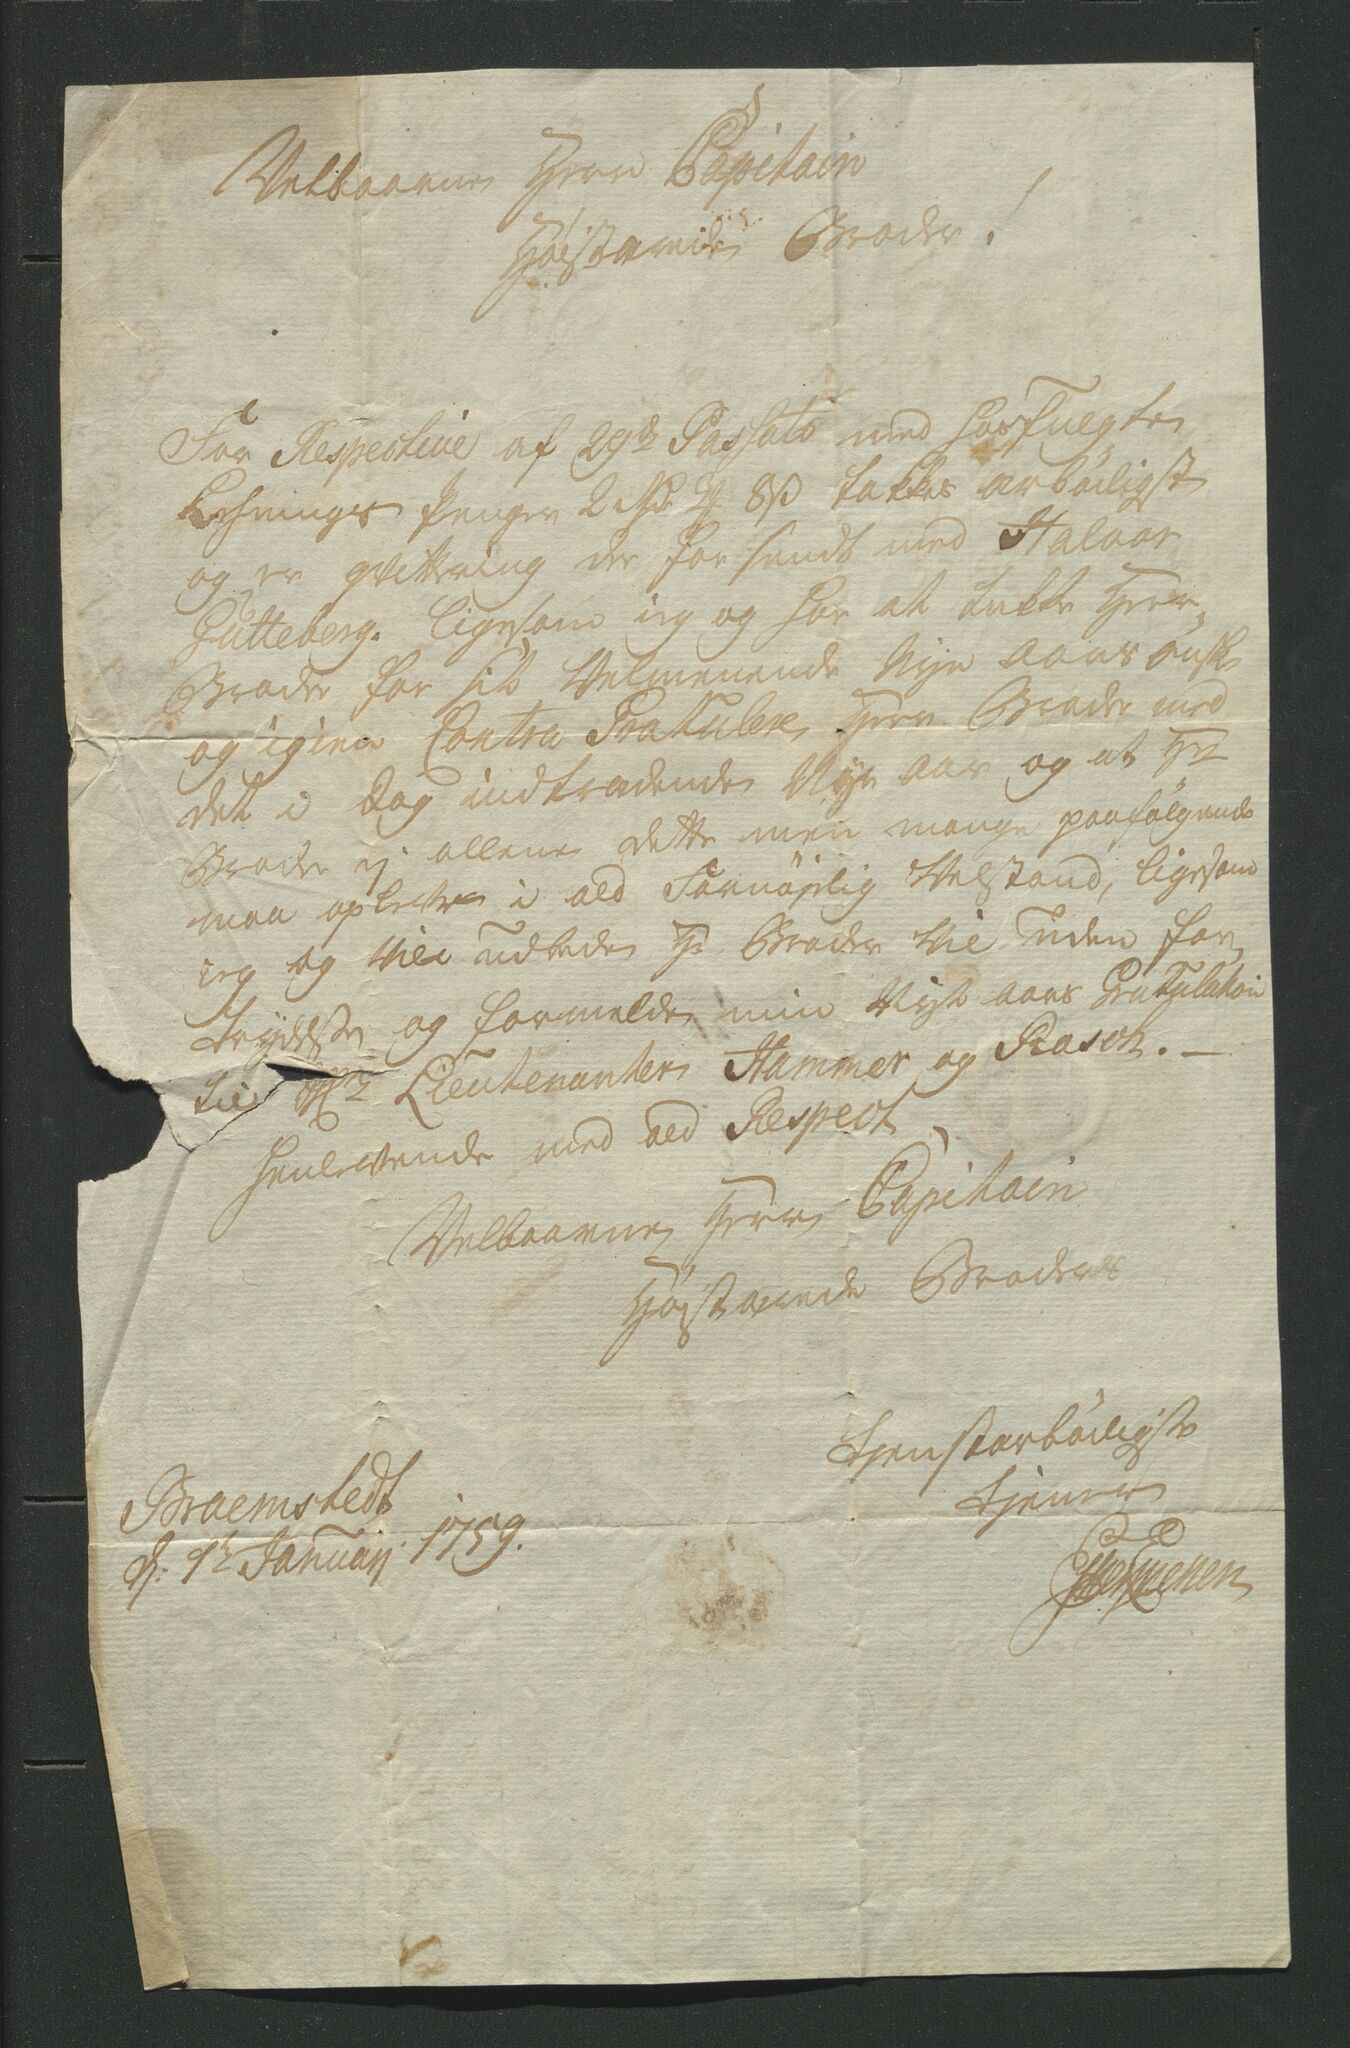 Velbaarne Herr Capitain
Høistærede Broder!
For Respective af 29de Passato med hosfuegte
Lehnings penger 2 Rd 8 s takkes ærbödigst
og er qvittering der for sendt med Halvor
Gutteberg. ligesom ieg og har at takke Herr
Broder for sit Velmenende Nye aars önske
og igien Contra Gratulere Herr Broder med
det i dag indtrædende Nye aar og at Hr
Broder ej allene dette men mange paafölgende
maa opleve i ald Fornöjelig Velstand, ligesom
ieg og vil udbede Hr Broder vil uden for
trydelse og formelde min Nyt aars Gratulation
til Hr Lieutenanter Hammer og Rasch. —
henlevende med ald Respect
Velbaarne Herr Capitain
Høistærede Broders
tjenstærbödigste
tjener
Braemstedt
d. 1te Januarj 1759.